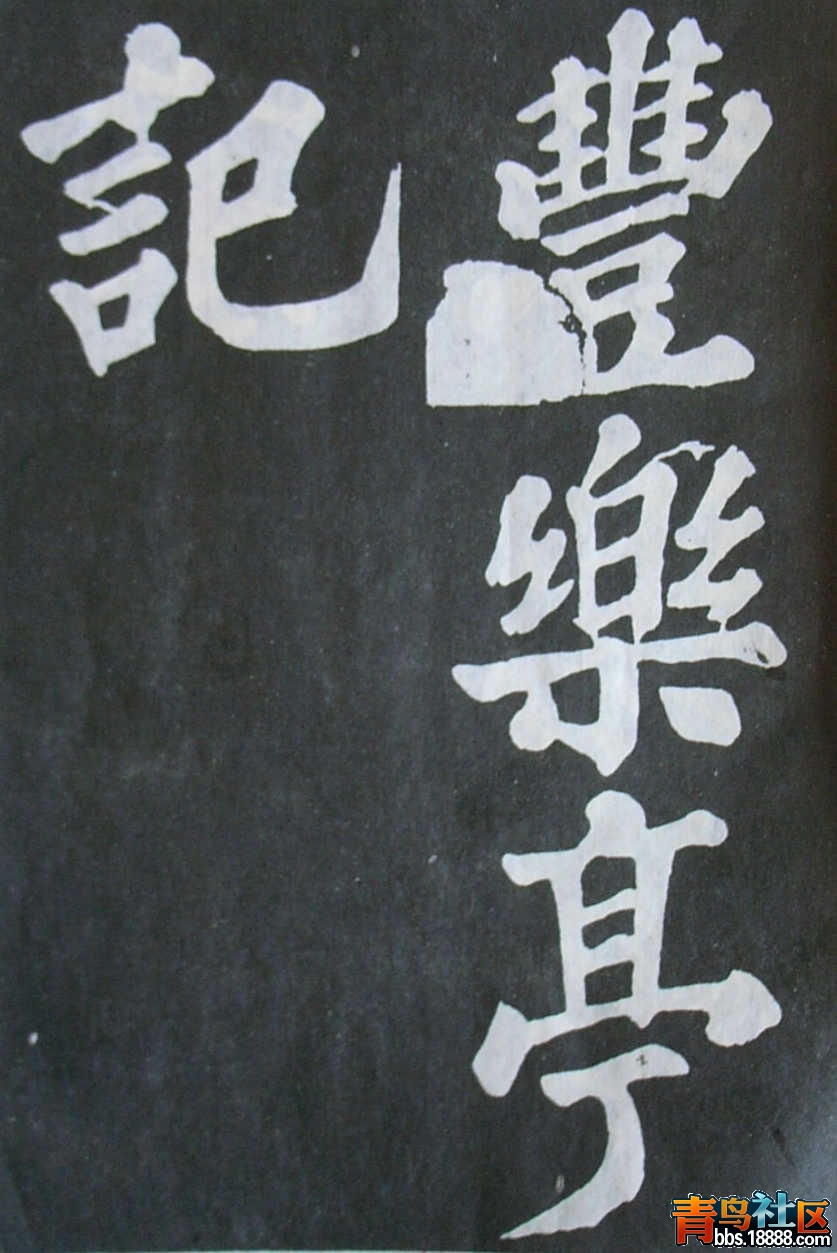 豐樂亭
記
青鸟社区
bbs.18888.com